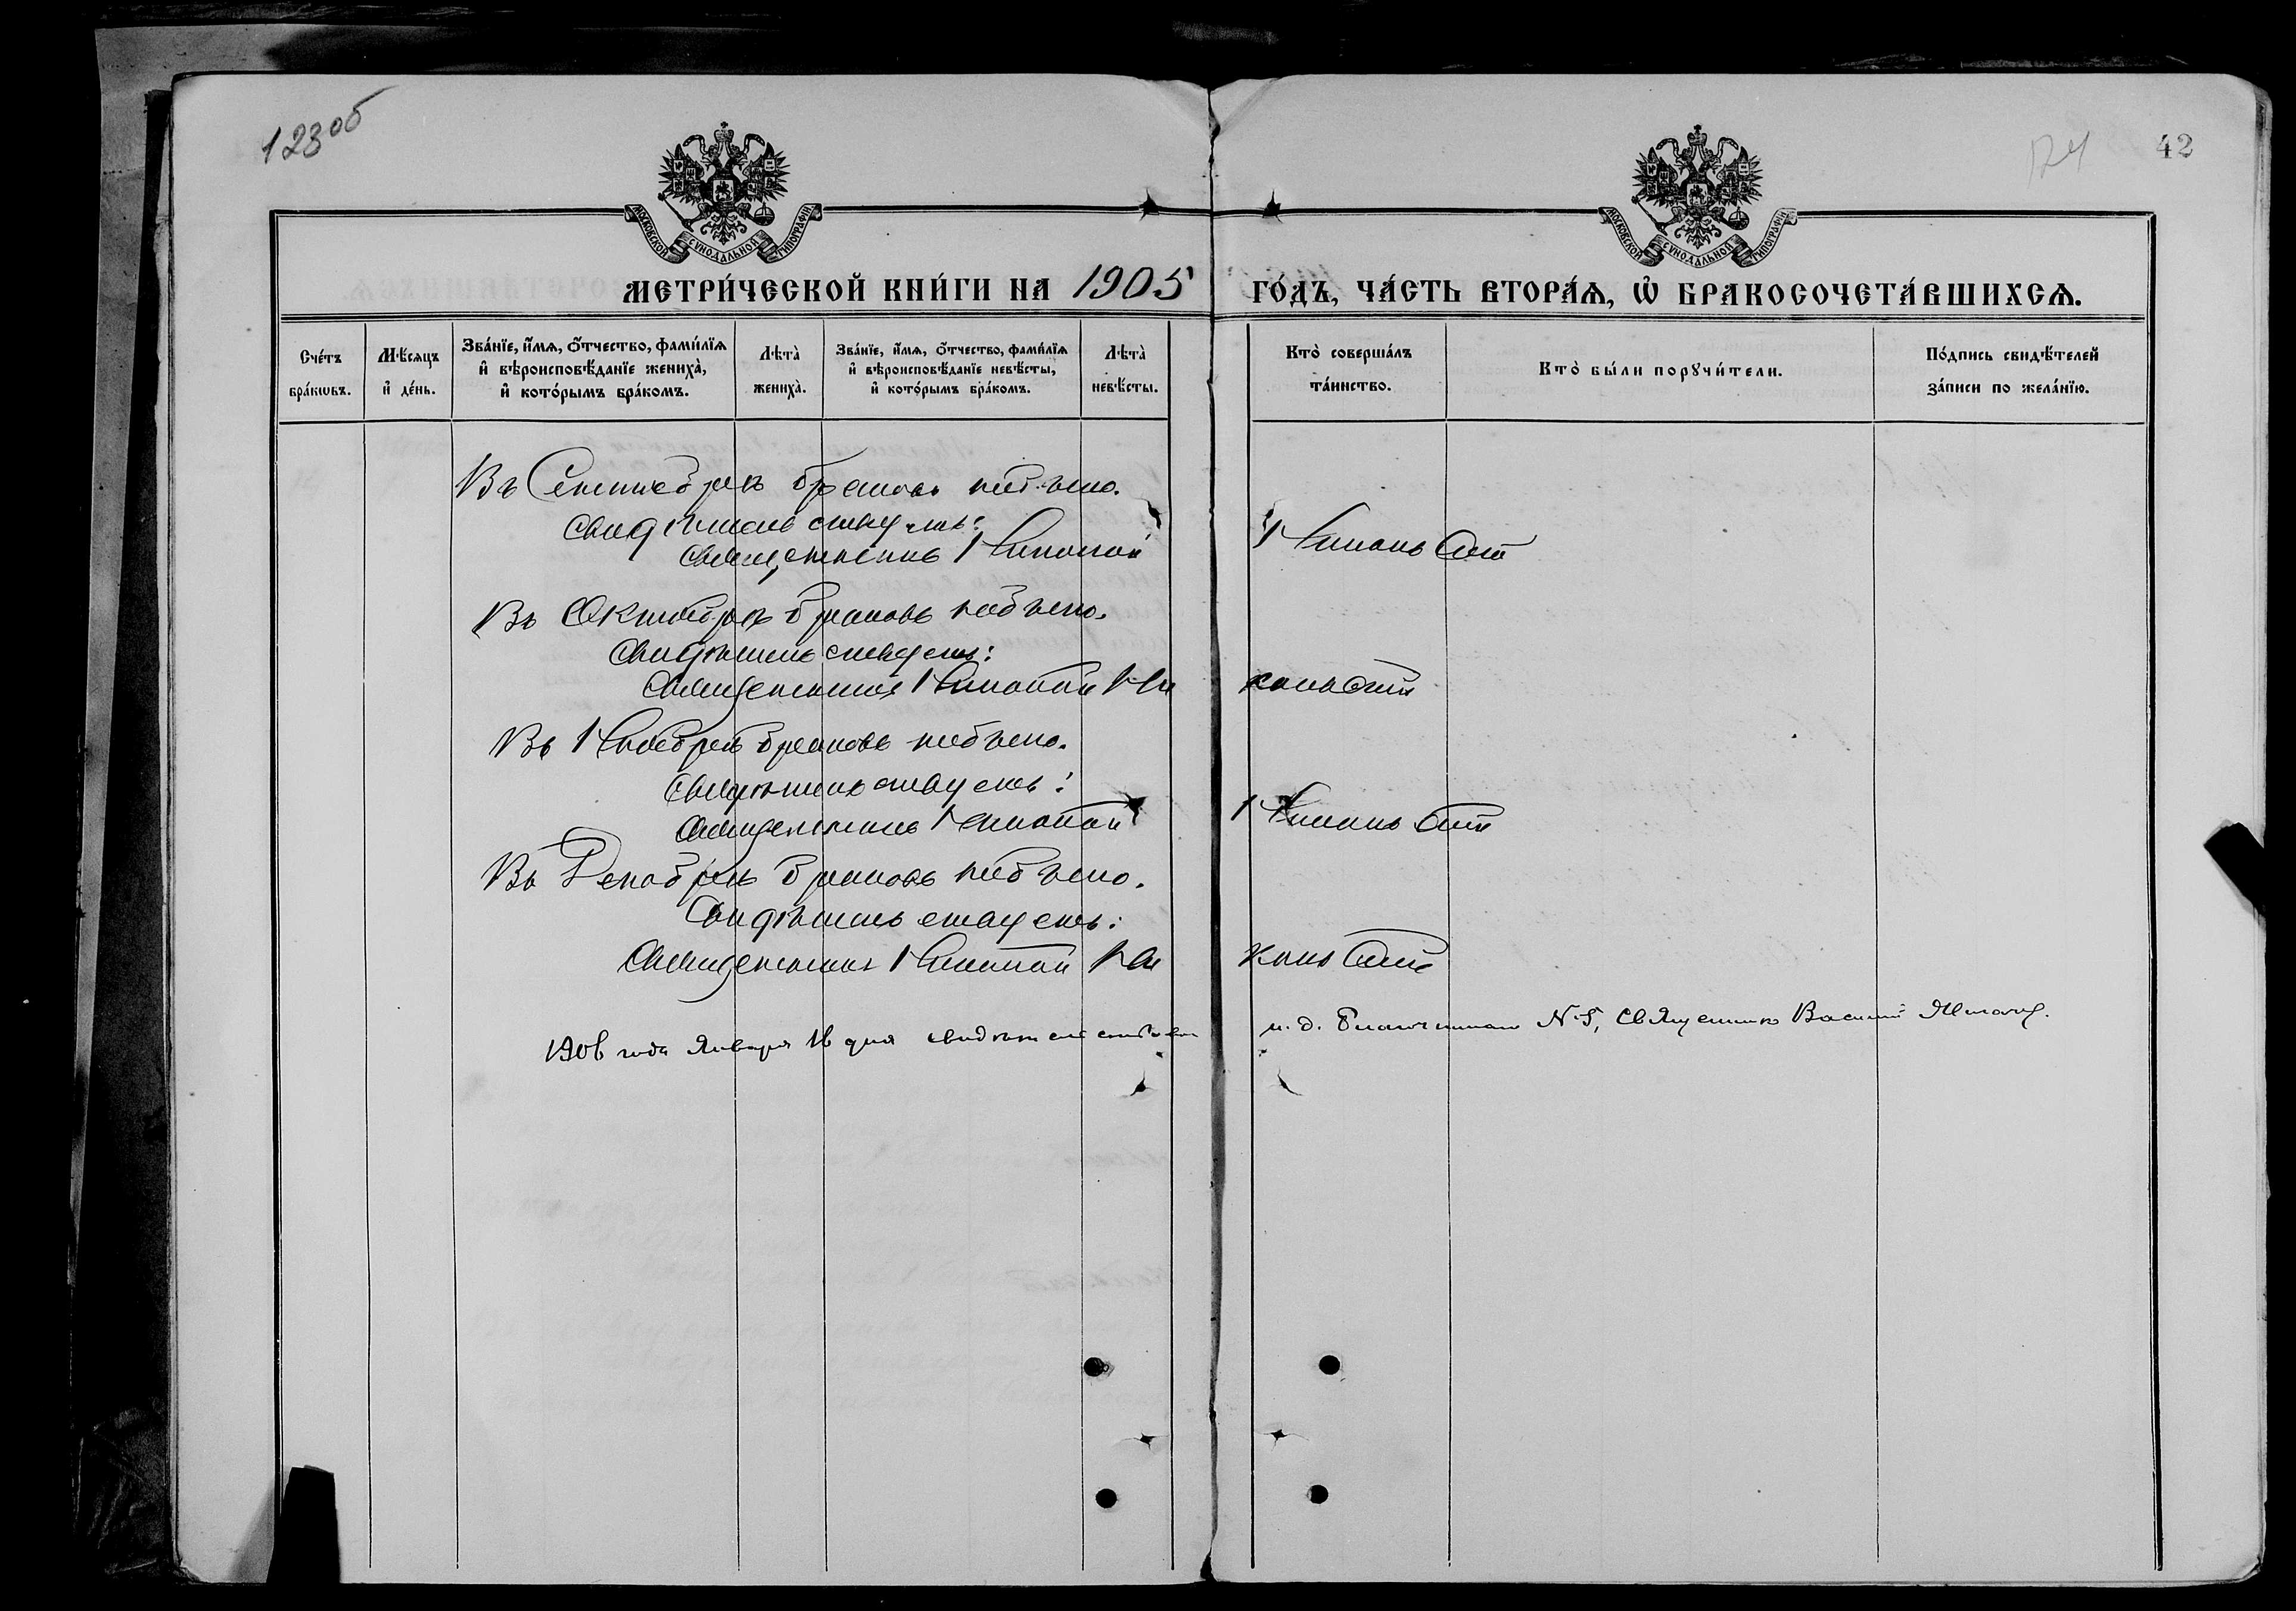 123об
124
42
МОСКОВСКОЙ СѴНОДАЛЬНОЙ ТИПОГРАФІИ
МОСКОВСКОЙ СѴНОДАЛЬНОЙ ТИПОГРАФІИ
МЕТРИ́ЧЕСКОЙ КНИ́ГИ НА 1905 ГО́ДЪ, ЧА́СТЬ ВТОРА́Ѧ, Ѡ҆ БРАКОСОЧЕТА́ВШИХСѦ.
Сче́тъ бра́кωвъ.
Мѣ́сяцъ и҆ де́нь.
Зва́нїе, и҆́мѧ, о҆́тчество, фами́лїѧ и҆ вѣроисповѣ́данїе жениха̀, и҆ кото́рымъ бра́комъ.
Лѣта̀ жениха̀.
Зва́нїе, и҆́мѧ, о҆́тчество, фами́лїѧ и҆ вѣроисповѣ́данїе невѣ́сты, и҆ кото́рымъ бра́комъ.
Лѣта̀ невѣ́сты.
Кто̀ соверша́лъ та́инство.
Кто̀ бы́ли порꙋчи́тели.
По́дпись свидѣ́телей за́писи по жела́нїю.
Въ Сентябрѣ браковъ небыло.
Свидѣтельствуетъ:
Священникъ Николай
Въ Октябрѣ браковъ небыло.
Свидѣтельствуетъ:
Священникъ Николай
Въ Ноябрѣ браковъ небыло.
Свидѣтельствуетъ:
Священникъ Николай
Въ Декабрѣ браковъ небыло.
Свидѣтельствуетъ:
Священникъ Николай
1906 года Января 16 дня свидѣтельствовалъ и. д. Благочиннаго №5, Священникъ Василій